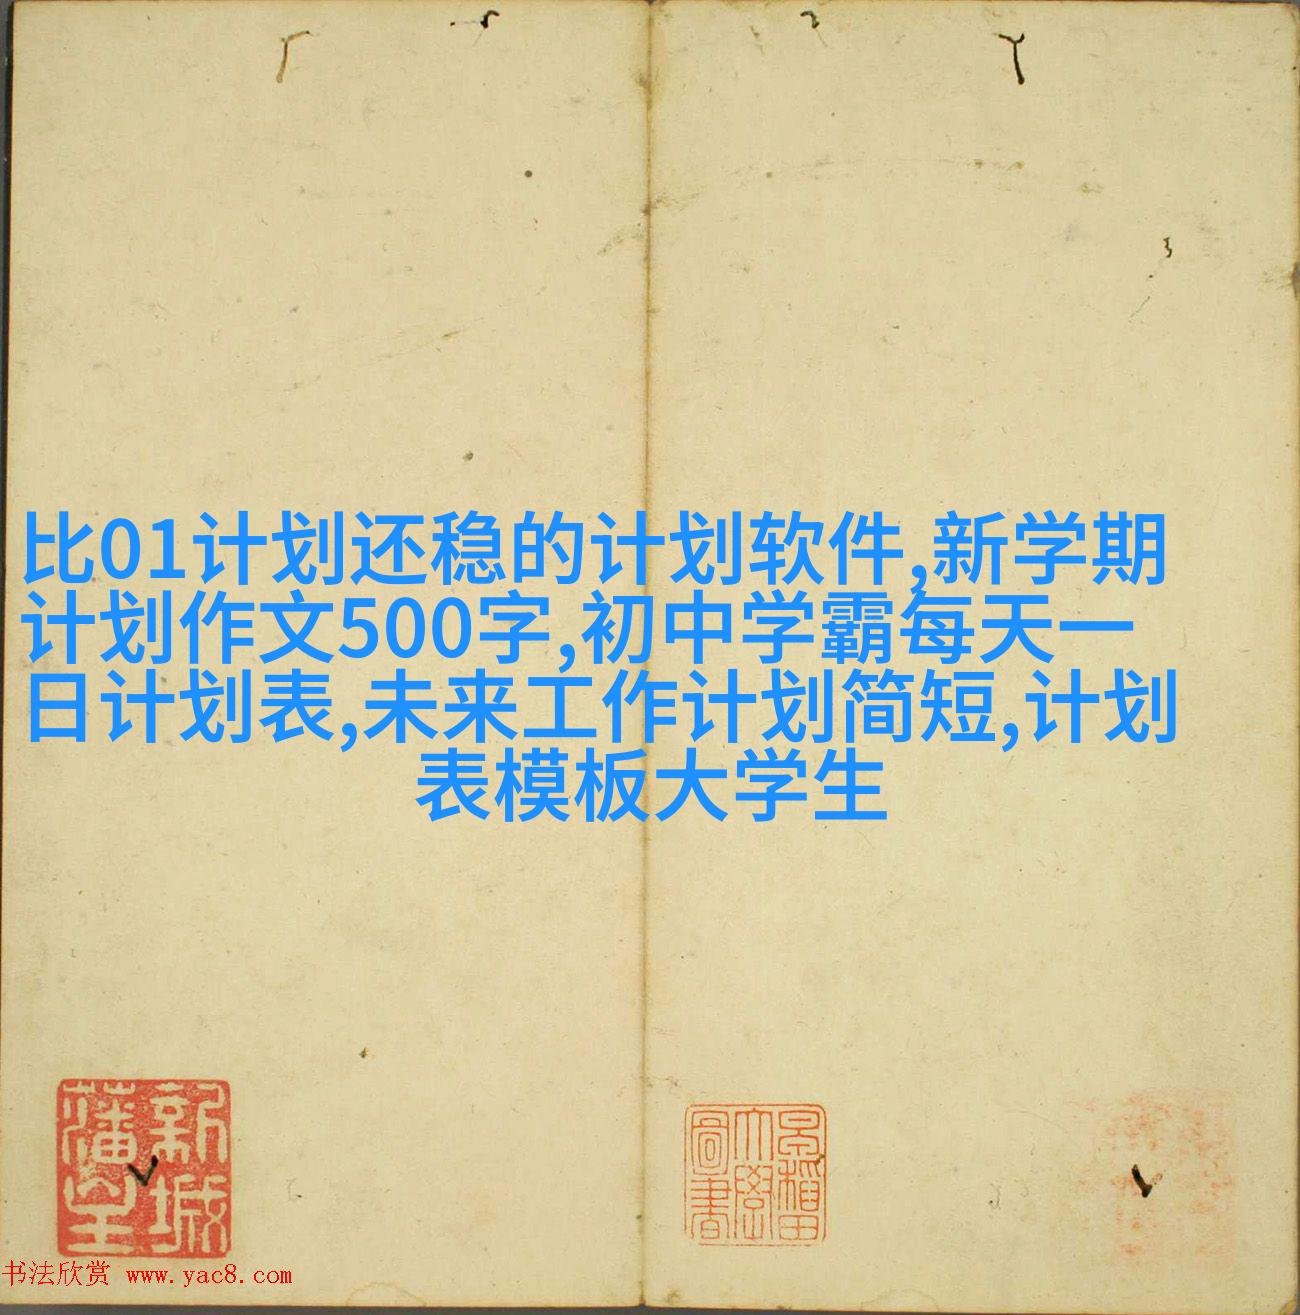 比01计划还稳的计划软件,新学期
计划作文500字,初中学霸每天一
日计划表,未来工作计划简短,计划
表模板大学生
新城
藩室
早稲田
大學
圖書
书法欣赏 www.yac8.com